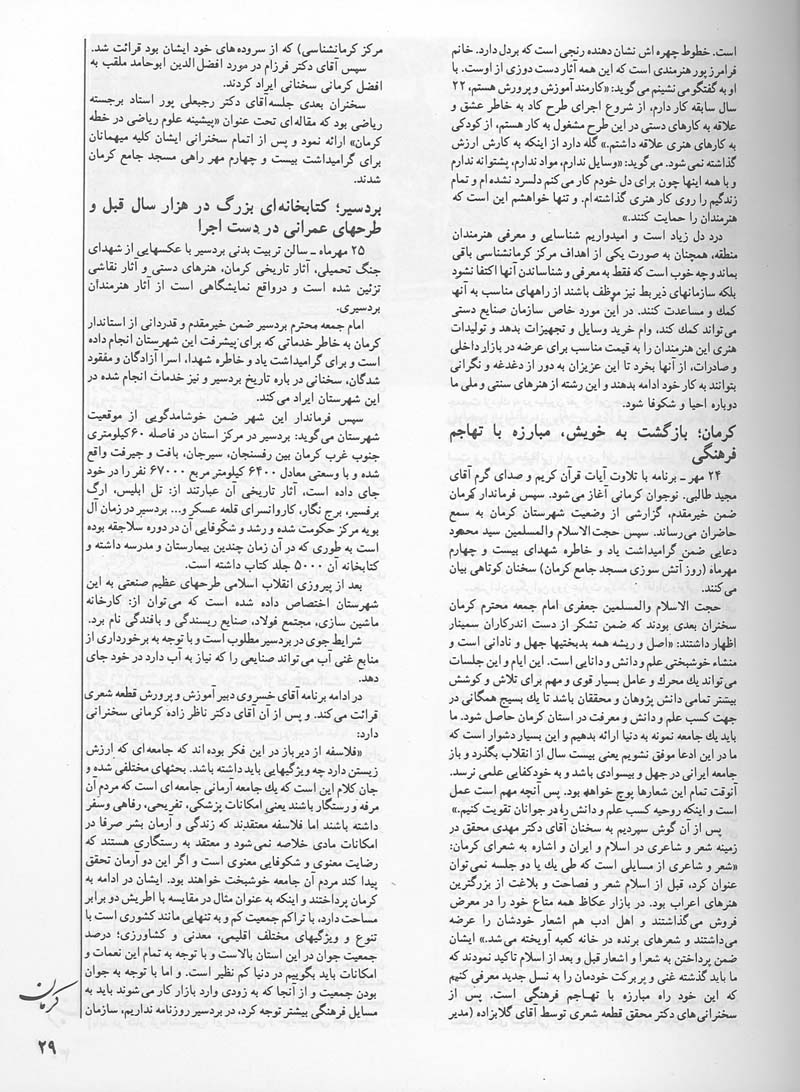 است. خطوط چهره اش نشان دهنده رنجی است که بردل دارد. خانم
فرامرز پور هنرمندی است که این همه آثار دست دوزی از اوست. با
او به گفتگو می نشینم می گوید: «کارمند آموزش و پرورش هستم، ۲۲
سال سابقه کار دارم، از شروع اجرای طرح کاد به خاطر عشق و
علاقه به کارهای دستی در این طرح مشغول به کار هستم، از کودکی
به کارهای هنری علاقه داشتم.» گله دارد از اینکه به کارش ارزش
گذاشته نمی شود. می گوید: «وسایل ندارم، مواد ندارم، پشتوانه ندارم
و با همه اینها چون برای دل خودم کار می کنم دلسرد نشده ام و تمام
زندگیم را روی کار هنری گذاشته ام. و تنها خواهشم این است که
هنرمندان را حمایت کنند.»
درد دل زیاد است و امیدواریم شناسایی و معرفی هنرمندان
منطقه، همچنان به صورت یکی از اهداف مرکز کرمانشناسی باقی
بماند وچه خوب است که فقط به معرفی و شناساندن آنها اکتفا نشود
بلکه سازمانهای ذیربط نیز موظف باشند از راههای مناسب به آنها
کمك و مساعدت کنند. در این مورد خاص سازمان صنایع دستی
می تواند کمك کند، وام خرید وسایل و تجهیزات بدهد و تولیدات
هنری این هنرمندان را به قیمت مناسب برای عرضه در بازار داخلی
و صادرات، از آنها بخرد تا این عزیزان به دور از دغدغه و نگرانی
بتوانند به کار خود ادامه بدهند و این رشته از هنرهای سنتی و ملی ما
دوباره احیا و شکوفا شود.
کرمان؛ بازگشت به خویش، مبارزه با تهاجم
فرهنگی
۲۴ مهر ـ برنامه با تلاوت آیات قرآن کریم و صدای گرم آقای
مجید طالبی. نوجوان کرمانی آغاز می شود. سپس فرماندار کرمان
ضمن خیرمقدم، گزارشی از وضعیت شهرستان کرمان به سمع
حاضران می رساند. سپس حجت الاسلام والمسلمین سید محمود
دعایی ضمن گرامیداشت یاد و خاطره شهدای بیست و چهارم
مهرماه (روز آتش سوزی مسجد جامع کرمان) سخنان کوتاهی بیان
می کنند.
حجت الاسلام والمسلمین جعفری امام جمعه محترم کرمان
سخنران بعدی بودند که ضمن تشکر از دست اندرکاران سمینار
اظهار داشتند: «اصل و ریشه همه بدبختیها جهل و نادانی است و
منشاء خوشبختی علم و دانش و دانایی است. این ایام و این جلسات
می تواند یك محرك و عامل بسیار قوی و مهم برای تلاش و کوشش
بیشتر تمامی دانش پژوهان و محققان باشد تا یك بسیج همگانی در
جهت کسب علم و دانش و معرفت در استان کرمان حاصل شود. ما
باید یك جامعه نمونه به دنیا ارائه بدهیم و این بسیار دشوار است که
ما در این ادعا موفق نشویم یعنی بیست سال از انقلاب بگذرد و باز
جامعه ایرانی در جهل و بیسوادی باشد و به خودکفایی علمی نرسد.
آنوقت تمام این شعارها پوچ خواهد بود. پس آنچه مهم است عمل
است و اینکه روحیه کسب علم و دانش را در جوانان تقویت کنیم.»
پس از آن گوش سپردیم به سخنان آقای دکتر مهدی محقق در
زمینه شعر و شاعری در اسلام و ایران و اشاره به شعرای کرمان:
«شعر و شاعری از مسایلی است که طی یك یا دو جلسه نمی توان
عنوان کرد، قبل از اسلام شعر و فصاحت و بلاغت از بزرگترین
هنرهای اعراب بود. در بازار عکاظ همه متاع خود را در معرض
فروش می گذاشتند و اهل ادب هم اشعار خودشان را عرضه
می داشتند و شعرهای برنده در خانه کعبه آویخته می شد.» ایشان
ضمن پرداختن به شعرا و اشعار قبل و بعد از اسلام تاکید نمودند که
ما باید گذشته غنی و پربرکت خودمان را به نسل جدید معرفی کنیم
که این خود راه مبارزه با تهاجم فرهنگی است. پس از
سخنرانی های دکتر محقق قطعه شعری توسط آقای گلابزاده (مدیر
مرکز کرمانشناسی) که از سروده های خود ایشان بود قرائت شد.
سپس آقای دکتر فرزام در مورد افضل الدین ابوحامد ملقب به
افضل کرمانی سخنانی ایراد کردند.
سخنران بعدی جلسه آقای دکتر رجبعلی پور استاد برجسته
ریاضی بود که مقاله ای تحت عنوان «پیشینه علوم ریاضی در خطه
کرمان» ارائه نمود و پس از اتمام سخنرانی ایشان کلیه میهمانان
برای گرامیداشت بیست و چهارم مهر راهی مسجد جامع کرمان
شدند.
بردسیر؛ کتابخانه ای بزرگ در هزار سال قبل و
طرحهای عمرانی در دست اجرا
۲۵ مهرماه ـ سالن تربیت بدنی بردسیر با عکسهایی از شهدای
جنگ تحمیلی، آثار تاریخی کرمان، هنرهای دستی و آثار نقاشی
تزئین شده است و درواقع نمایشگاهی است از آثار هنرمندان
بردسیری.
امام جمعه محترم بردسیر ضمن خیرمقدم و قدردانی از استاندار
کرمان به خاطر خدماتی که برای پیشرفت این شهرستان انجام داده
است و برای گرامیداشت یاد و خاطره شهدا، اسرا آزادگان و مفقود
شدگان، سخنانی در باره تاریخ بردسیر و نیز خدمات انجام شده در
این شهرستان ایراد می کند.
سپس فرماندار این شهر ضمن خوشامدگویی از موقعیت
شهرستان می گوید: بردسیر در مرکز استان در فاصله ۶۰ کیلومتری
جنوب غرب کرمان بین رفسنجان، سیرجان، بافت و جیرفت واقع
شده و با وسعتی معادل ۶۴۰۰ کیلومتر مربع ۶۷۰۰۰ نفر را در خود
جای داده است، آثار تاریخی آن عبارتند از: تل ابلیس، ارگ
برفسیر، برج نگار، کاروانسرای قلعه عسکر و... بردسیر در زمان آل
بویه مرکز حکومت شده و رشد و شکوفایی آن در دوره سلاجقه بوده
است به طوری که در آن زمان چندین بیمارستان و مدرسه داشته و
کتابخانه آن ۵۰۰۰ جلد کتاب داشته است.
بعد از پیروزی انقلاب اسلامی طرحهای عظیم صنعتی به این
شهرستان اختصاص داده شده است که می توان از: کارخانه
ماشین سازی، مجتمع فولاد، صنایع ریسندگی و بافندگی نام برد.
شرایط جوی در بردسیر مطلوب است و با توجه به برخورداری از
منابع غنی آب می تواند صنایعی را که نیاز به آب دارد در خود جای
دهد.
در ادامه برنامه آقای خسروی دبیر آموزش و پرورش قطعه شعری
قرائت می کند. و پس از آن آقای دکتر ناظر زاده کرمانی سخنرانی
دارد:
«فلاسفه از دیر باز در این فکر بوده اند که جامعه ای که ارزش
زیستن دارد چه ویژگیهایی باید داشته باشد. بحثهای مختلفی شده و
جان کلام این است که یك جامعه آرمانی جامعه ای است که مردم آن
مرفه و رستگار باشند یعنی امکانات پزشکی، تفریحی، رفاهی وسفر
داشته باشند اما فلاسفه معتقدند که زندگی و آرمان بشر صرفا در
امکانات مادی خلاصه نمی شود و معتقد به رستگاری هستند که
رضایت معنوی و شکوفایی معنوی است و اگر این دو آرمان تحقق
پیدا کند مردم آن جامعه خوشبخت خواهند بود. ایشان در ادامه به
کرمان پرداختند و اینکه به عنوان مثال در مقایسه با اطریش دو برابر
مساحت دارد، با تراکم جمعیت کم و به تنهایی مانند کشوری است با
تنوع و ویژگیهای مختلف اقلیمی، معدنی و کشاورزی؛ درصد
جمعیت جوان در این استان بالاست و با توجه به تمام این نعمات و
امکانات باید بگوییم در دنیا کم نظیر است. و اما با توجه به جوان
بودن جمعیت و از آنجا که به زودی وارد بازار کار می شوند باید به
مسایل فرهنگی بیشتر توجه کرد، در بردسیر روزنامه نداریم، سازمان
کرمان
۲۹